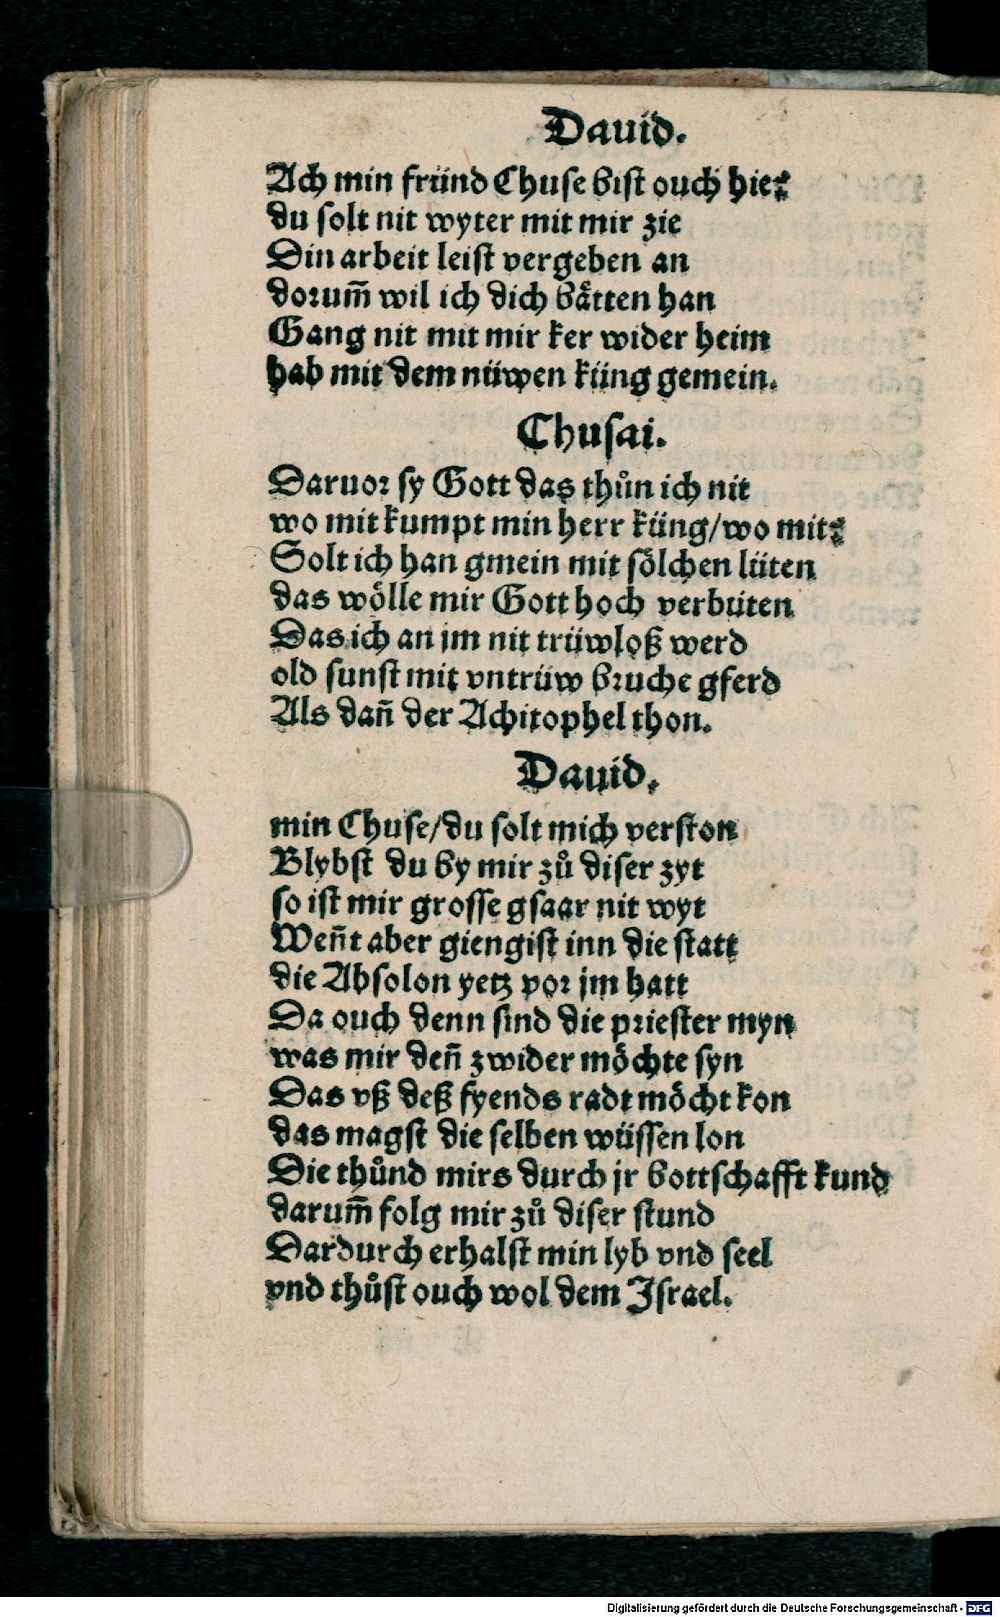 Dauid.
Ach min fründ Chuse bist ouch hie?
du solt nit wyter mit mir zie
Din arbeit leist vergeben an
dorum̃ wil ich dich bätten han
Gang nit mit mir ker wider heim
hab mit dem nüwen küng gemein.
Chusai.
Daruor sy Gott das thůn ich nit
wo mit kumpt min herr küng/wo mit?
Solt ich han gmein mit sölchen lüten
das wölle mir Gott hoch verbüten
Das ich an jm nit trüwloß werd
old sunst mit vntrüw bruche gferd
Als dañ der Achitophel thon.
Dauid.
min Chuse/du solt mich verston
Blybst du by mir zů diser zyt
so ist mir grosse gfaar nit wyt
Weñt aber giengist inn die statt
die Absolon yetz vor jm hatt
Da ouch denn sind die priester myn
was mir deñ zwider möchte syn
Das vß deß fyends radt möcht kon
das magst die selben wüssen lon
Die thůnd mirs durch jr bottschafft kund
darum̃ folg mir zů diser stund
Dardurch erhalst min lyb vnd seel
vnd thůst ouch wol dem Israel.
Digitalisierung gefördert durch die Deutsche Forschungsgemeinschaft - DFG